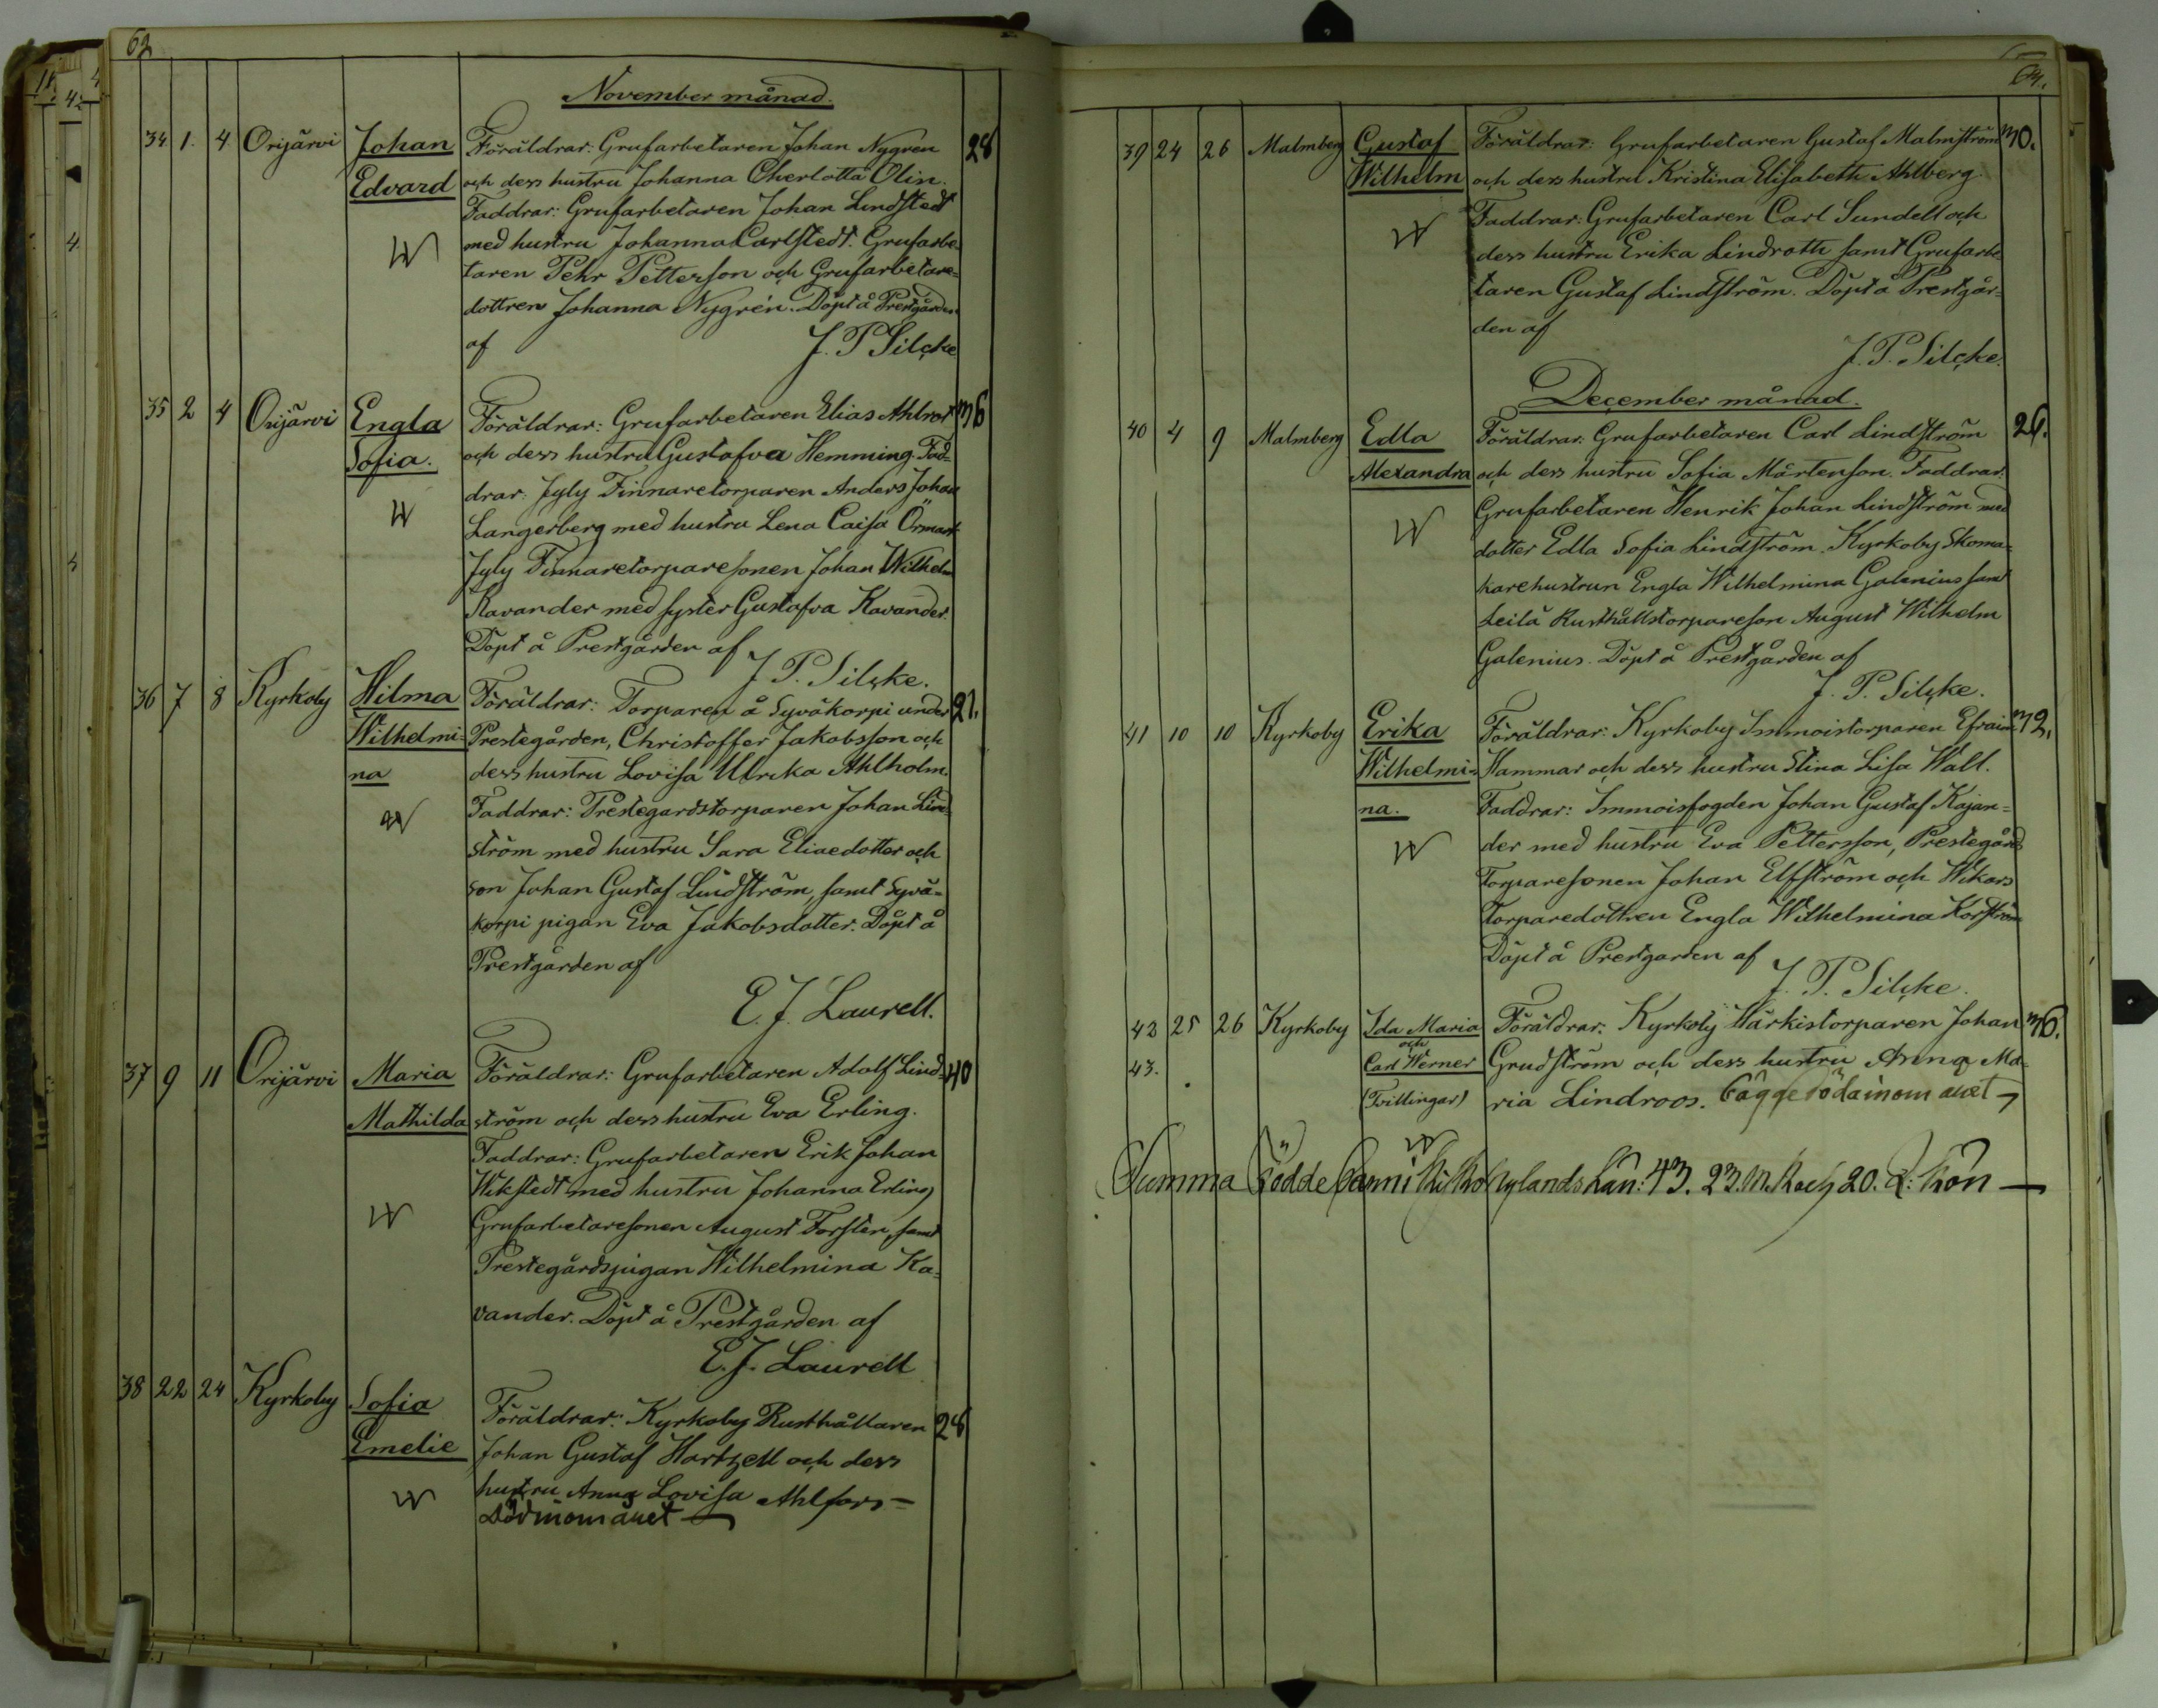 62
November månad.
34. 1. 4 Orijärvi Johan Föräldrar: Grufarbetaren Johan Nygren 28
Edvard och dess hustru Johanna Cherlotta Olin.
Faddrar: Grufarbetaren Johan Lindstedt
med hustru Johanna Carlstedt. Grufarbe-
taren Pehr Petterson och Grufarbetare-
dottren Johanna Nygrén. Döpt å Prestgården
af J. P. Silcke
35 2 4 Orijärvi Engla Föräldrar: Grufarbetaren Elias Ahlrot 36
Sofia. och dess hustru Gustafva Hemming. Fad-
drar: Jyly Finnaretorparen Anders Johan
Langerberg med hustru Lena Caisa Örmark
Jyly Finnaretorparesonen Johan Wilhelm
Kavander med syster Gustafva Kavander.
Döpt å Prestgården af
J. P. Silcke.
36 7 8 Kyrkoby Hilma Föräldrar: Torparen å Syväkorpi under 21.
Wilhelmi- Prestegården, Christoffer Jakobsson och
na dess hustru Lovisa Ulrika Ahlholm.
Faddrar: Prestegardstorparen Johan Lind-
ström med hustru Sara Eliaedotter och
son Johan Gustaf Lindström, samt Syvä-
korpi pigan Eva Jakobsdotter. Döpt å
Prestgården af
E. J. Laurell.
37 9 11 Orijärvi Maria Föräldrar: Grufarbetaren Adolf Lind- 40
Mathilda ström och dess hustru Eva Erling.
Faddrar: Grufarbetaren Erik Johan
Wikstedt med hustru Johanna Erling
Grufarbetaresonen August Forstén, samt
Prestegårdspigan Wilhelmina Ka-
vander. Döpt å Prestgården af
E. J. Laurell
38 22 24 Kyrkoby Sofia Föräldrar: Kyrkoby Rusthållaren 28
Emelie Johan Gustaf Hartzell och dess
hustru Anna Lovisa Ahlfors –
Död inom året
39 24 26 Malmberg Gustaf Föräldrar: Grufarbetaren Gustaf Malmström 30.
Wilhelm och dess hustru Kristina Elisabeth Ahlberg.
Faddrar: Grufarbetaren Carl Sundell och
dess hustru Erika Lindroth samt Grufarbe-
taren Gustaf Lindström. Döpt å Prestgår-
den af
J. P. Silcke.
December månad.
40 4 9 Malmberg Edla Föräldrar: Grufarbetaren Carl Lindström 26.
Alexandra och dess hustru Sofia Mårtenson. Faddrar:
Grufarbetaren Henrik Johan Lindström med
dotter Edla Sofia Lindström. Kyrkoby Skoma-
karehustrun Engla Wilhelmina Galenius samt
Leilä Rusthållstorpareson August Wilhelm
Galenius. Döpt å Prestgården af
J. P. Silcke.
41 10 10 Kyrkoby Erika Föräldrar: Kyrkoby Immoistorparen Efraim 32.
Wilhelmi- Hammar och dess hustru Stina Lisa Wall.
na. Faddrar: Immoisfogden Johan Gustaf Kajan-
der med hustru Eva Pettersson, Prestegårds
Torparesonen Johan Elfström och Wikars
Torparedottren Engla Wilhelmina Korström
Döpt å Prestgarden af
J. P. Silcke.
42 25 26 Kyrkoby Ida Maria Föräldrar: Kyrkoby Härkistorparen Johan 36.
och
43. Carl Werner Grudström och dess hustru Anna Ma-
(Tvillingar) ria Lindroos. bägge döda inom året
Summa födde barn i Nylands Län: 43. 23. M. K och 20. Q: kön —